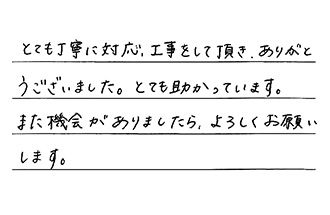 とても丁寧に対応、工事をして頂き、ありがと
うございました。とても助かっています。
また機会がありましたら、よろしくお願い
します。